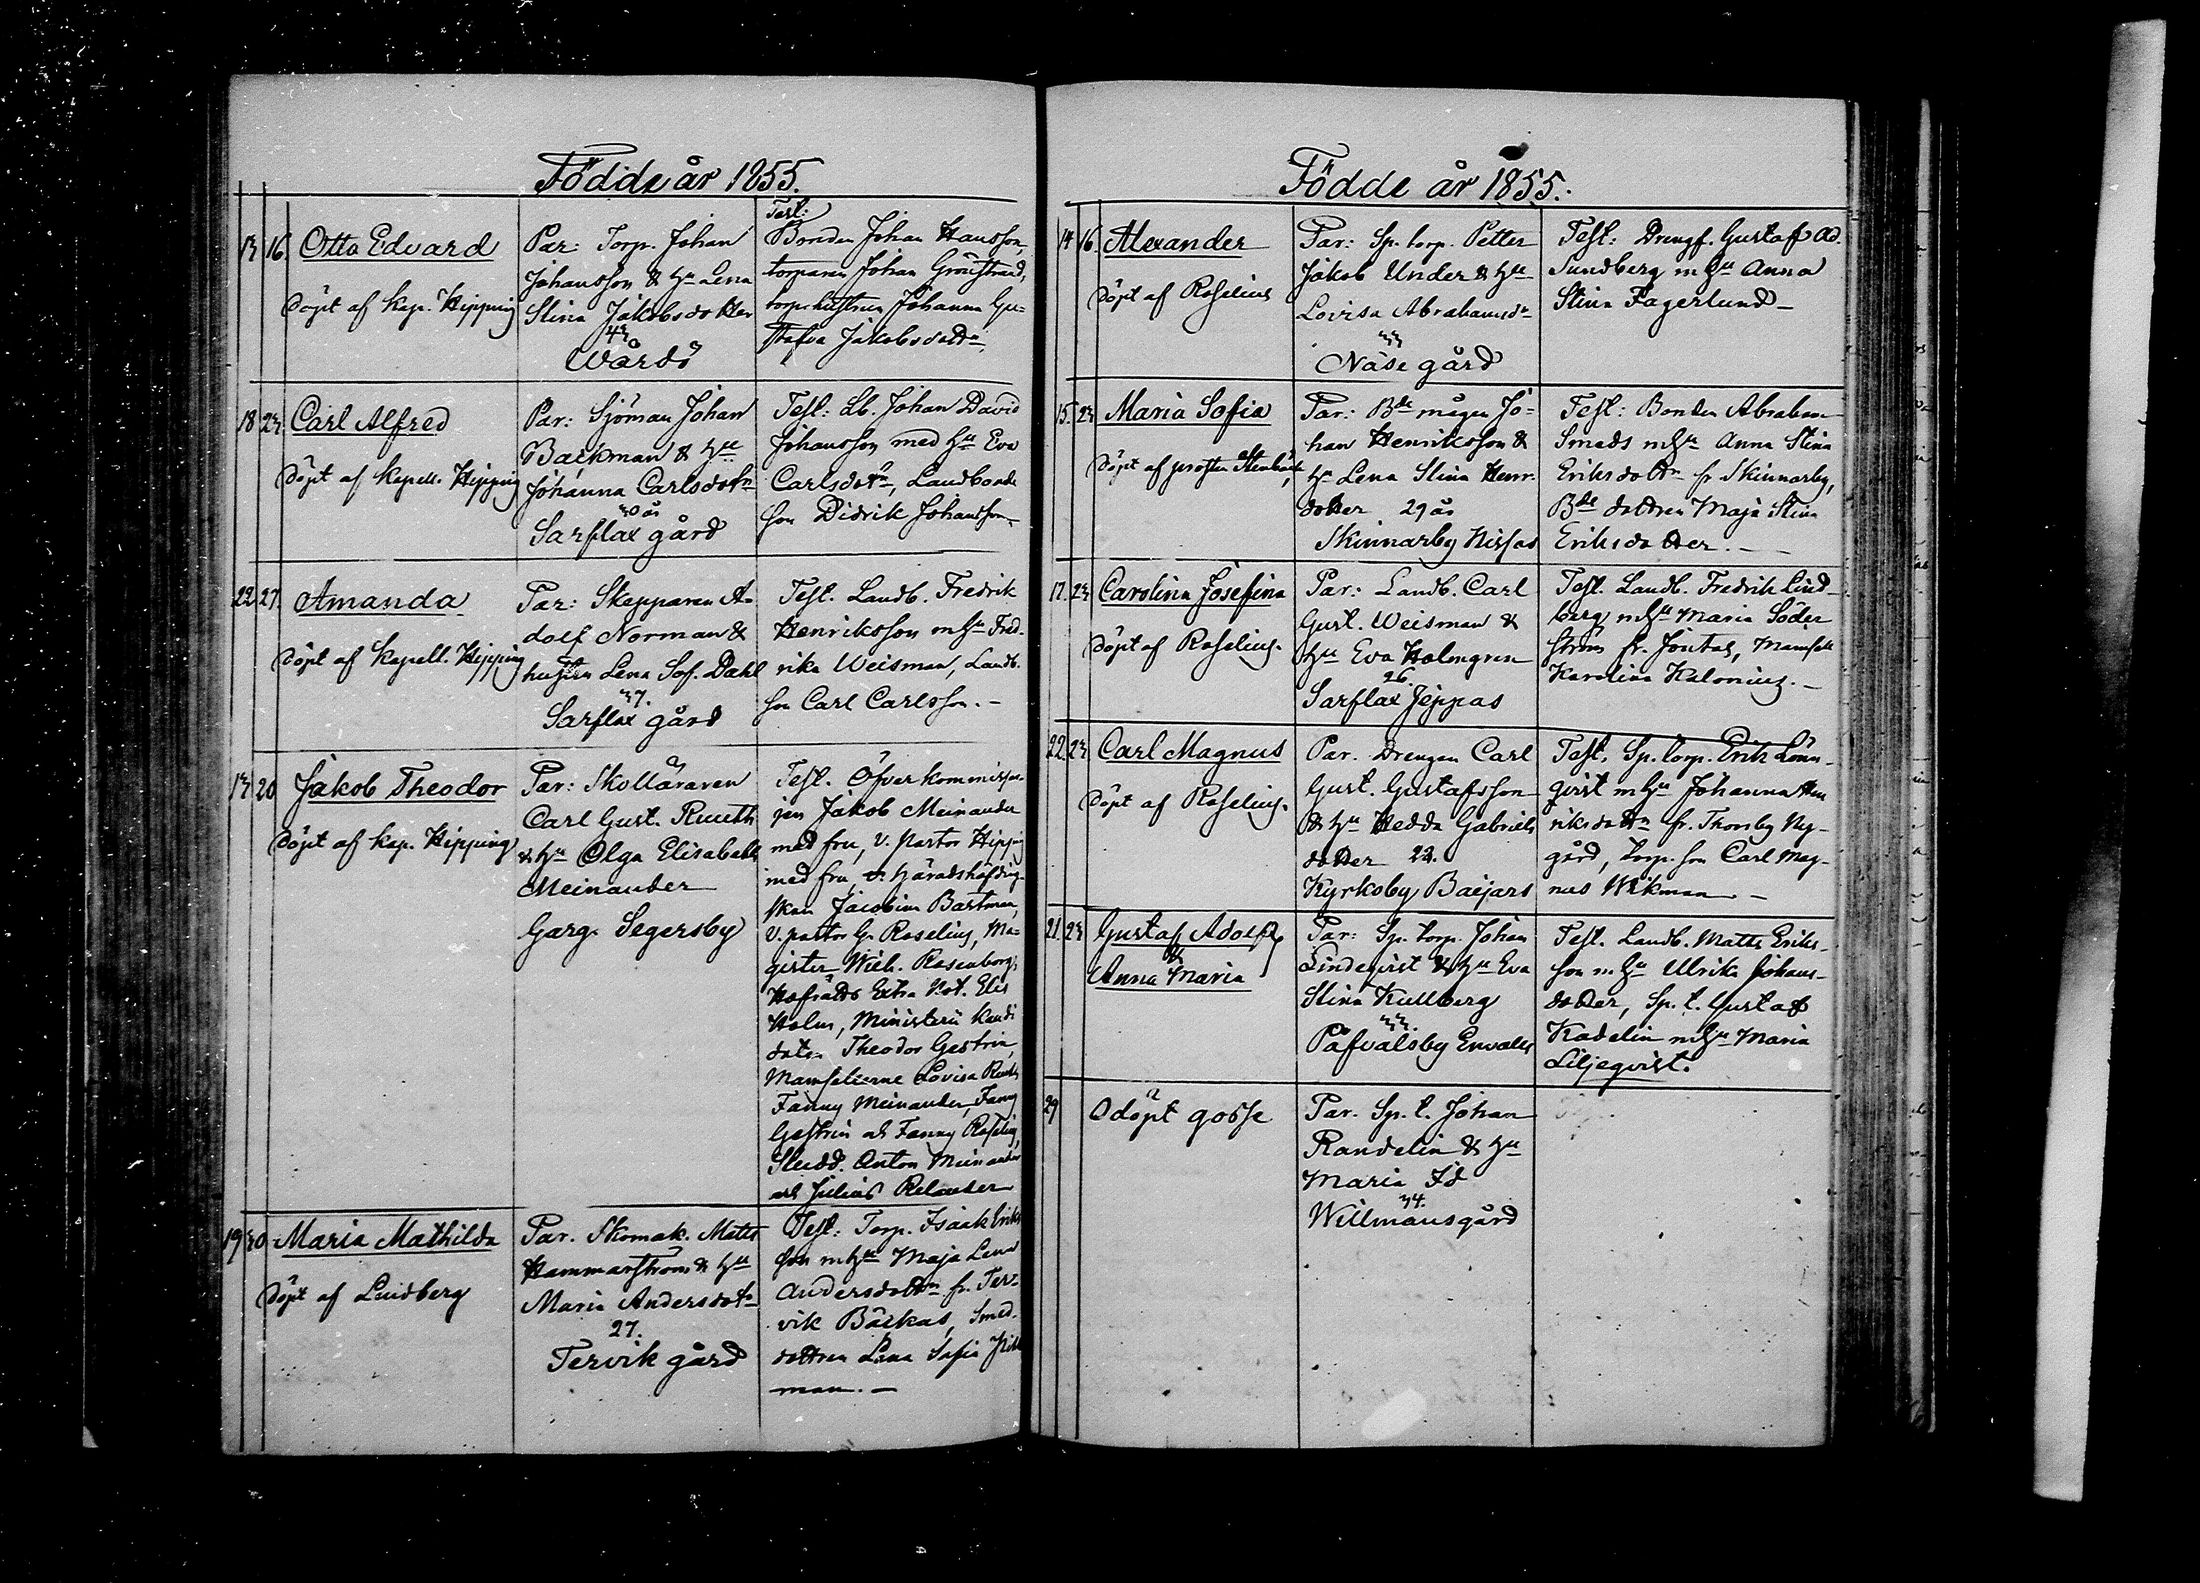 Födde år 1855.
13 16. Otto Edvard
Döpt af Kap. Hipping
Par: Torp. Johan
Johansson & hu Lena
Stina Jakobsdotter
43
Wårdö
Test:
Bonden Johan Hansson,
torparen Johan Grönstrand,
torp. hustrun Johanna Gu-
stafva Jakobsdottr
18 23. Carl Alfred
Döpt af Kapell. Hipping
Par: Sjöman Johan
Backman & hu
Johanna Carlsdotr
30 år
Sarflax gård
Test: Lb. Johan David
Johansson med hu Eva
Carlsdotr, Landbonde
son Didrik Johansson.
22. 27. Amanda
Döpt af Kapell. Hipping
Par: Skepparen A-
dolf Norman &
hustru Lena Sof. Dahl
37.
Sarflax gård
Test. Landb. Fredrik
Henriksson m hu Fred-
rika Weisman, Landb.
son Carl Carlsson. –
13 20 Jakob Theodor
Döpt af Kap. Hipping
Par: Skolläraren
Carl Gust. Rineth
& hu Olga Elisabeth
Meinander
Garg. Segersby
Test. Öfverkommissar-
jen Jakob Meinander
med fru, v. pastor Hipping
med fru, häradshöfding-
skan Jacobina Bastman,
v. pastor G. Roselius, Ma-
gister Wilh. Rosenborg,
Hofrätts Extra Not. Elis
Holm, Ministerii Kandi-
daten Theodor Gestrin,
Mamsellerne Lovisa
Fanny Meinander, Fanny
Gestrin och Fanny Roselius,
Studd. Anton Meinander
och Julius Relander
19 30 Maria Mathilda
Döpt af Lindberg
Par. Skomak. Matts
Hammarström & hu
Maria Andersdotr
27.
Tervik gård
Test: Torp. Isaak Eriks
son m hu Maja Lena
Andersdottr fr. Ter-
vik Backas, Smed-
dottren Lena Sofia
man. –
Födde år 1855.
14 16. Alexander
Döpt af Roselius
Par: Sp. torp. Petter
Jakob Under & hu
Lovisa Abrahamsdr
33
Näse gård
Test: Drengf. Gustaf Ad.
Sundberg m hu Anna
Stina Fagerlund –
15. 23 Maria Sofia
Döpt af prosten Stenbäck
Par: Bde mågen Jo-
han Henriksson &
hu Lena Stina Henr.
dotter 29 år
Skinnarby Nissas
Test: Bonden Abraham
Smeds m hu Anna Stina
Eriksdottr fr Skinnarby,
Bde dottren Maja Stina
Eriksdotter. –
17. 23 Carolina Josefina
Döpt af Roselius.
Par: Landb. Carl
Gust. Weisman &
hu Eva Holmgren
26.
Sarflax Jeppas
Test. Landb. Fredrik Lind-
berg m hu Maria Söder
ström fr. Jontas, Mamsell
Karolina Kalonius. –
22. 23 Carl Magnus
Döpt af Roselius.
Par. Drengen Carl
Gust. Gustafsson
& hu Hedda Gabriels
dotter 23.
Kyrkoby Baijars
Test. Sp. torp. Erik Lönn-
qvist m hu Johanna Hen
riksdottr fr. Thorsby Ny-
gård, Torp. son Carl Mag-
nus Wikman –
21. 23 Gustaf Adolf
&
Anna Maria
Par: Sp. torp. Johan
Lindeqvist & hu Eva
Stina Kullberg
33.
Påfvalsby Envalls
Test. Landb. Matts Eriks-
son m hu Ulrika Johans-
dotter, Sp. t. Gustaf
Kadelin m hu Maria
Liljeqvist.
29 Odöpt gosse
Par. Sp. t. Johan
Randelin & hu
Maria Id
34.
Willmansgård